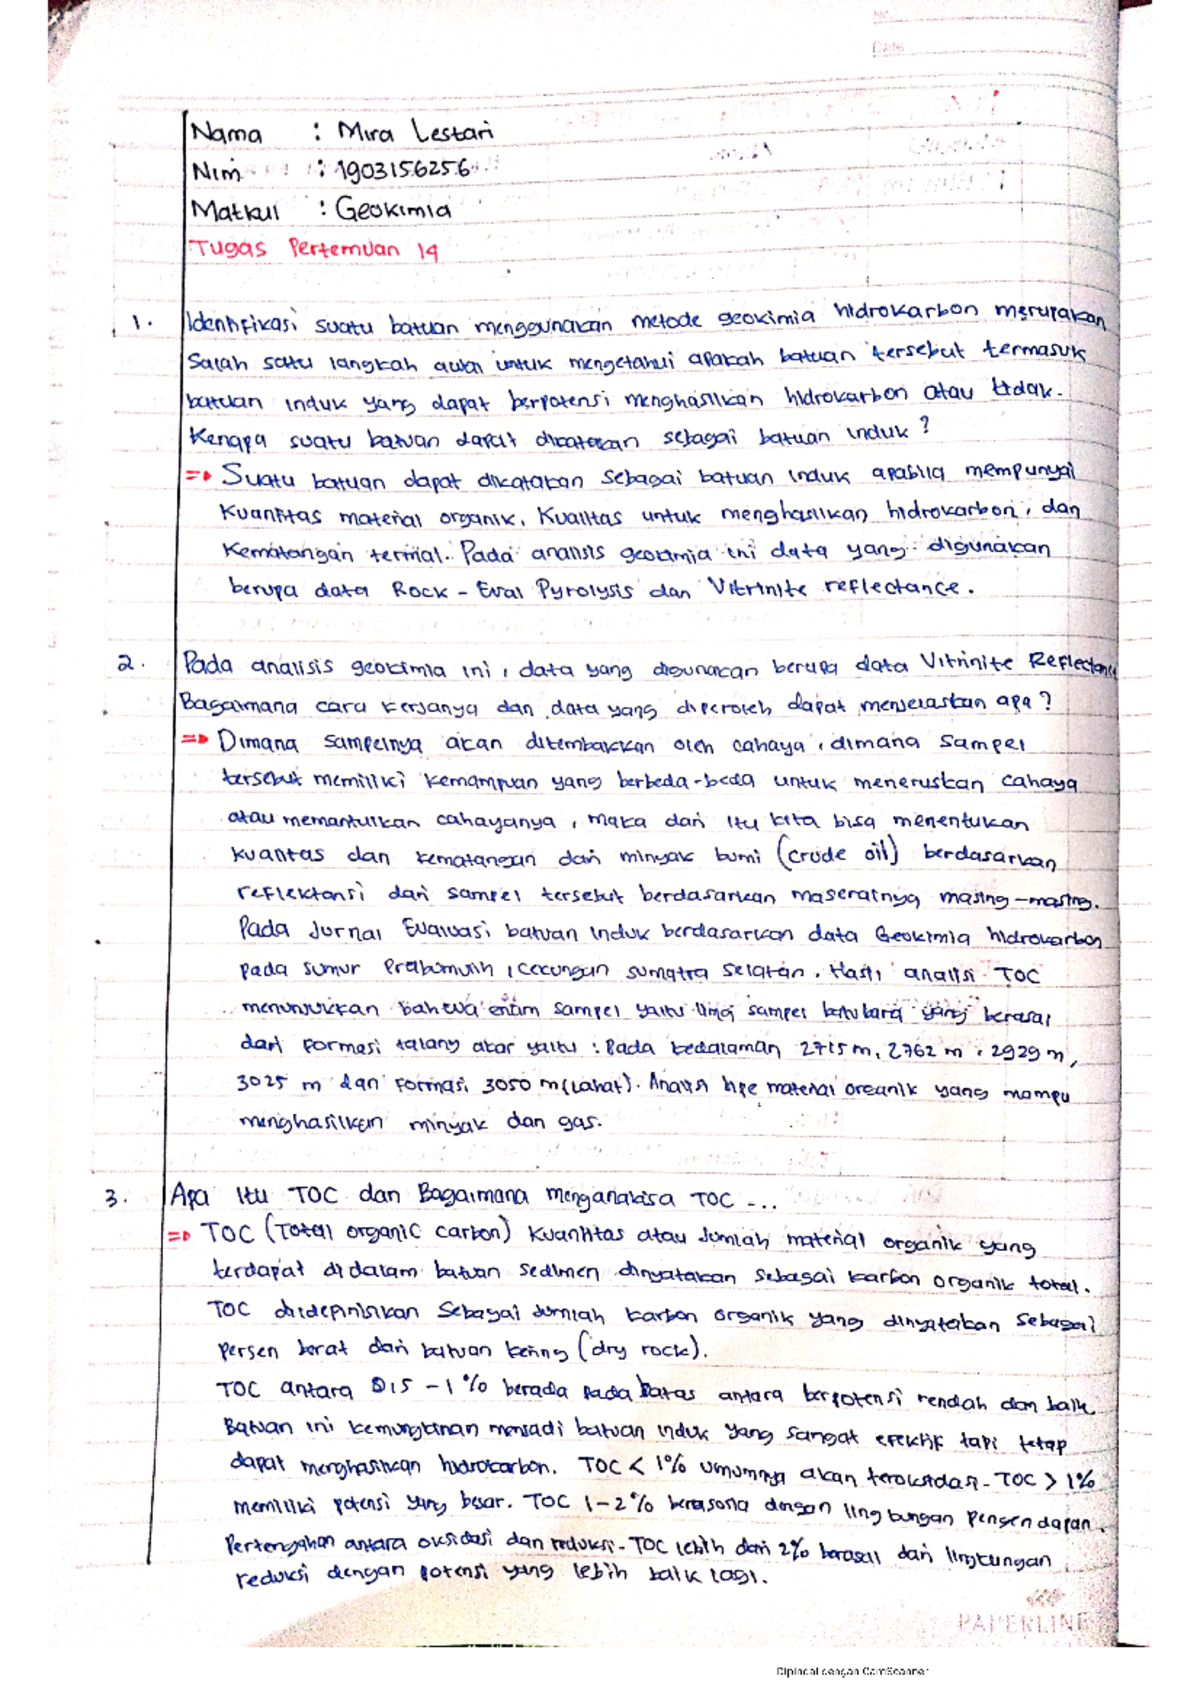 No.
Date
Nama : Mira Lestari
Nim : 1903156256
Matkul : Geokimia
Tugas Pertemuan 14
1. Identifikasi suatu batuan menggunakan metode geokimia hidrokarbon merupakan
salah satu langkah awal untuk mengetahui apakah batuan tersebut termasuk
batuan induk yang dapat berpotensi menghasilkan hidrokarbon atau tidak.
Kenapa suatu batuan dapat dikatakan sebagai batuan induk?
=> Suatu batuan dapat dikatakan sebagai batuan induk apabila mempunyai
Kuantitas material organik, Kualitas untuk menghasilkan hidrokarbon, dan
Kematangan termal. Pada analisis geokimia ini data yang digunakan
berupa data Rock-Eval Pyrolysis dan Vitrinite reflectance.
2. Pada analisis geokimia ini, data yang digunakan berupa data Vitrinite Reflectance
Bagaimana cara kerjanya dan data yang diperoleh dapat menjelaskan apa?
=> Dimana sampelnya akan ditembakkan oleh cahaya, dimana sampel
tersebut memiliki kemampuan yang berbeda-beda untuk meneruskan cahaya
atau memantulkan cahayanya, maka dari itu kita bisa menentukan
kualitas dan kematangan dari minyak bumi (crude oil) berdasarkan
reflektansi dari sampel tersebut berdasarkan maseralnya masing-masing.
Pada Jurnal Evaluasi batuan induk berdasarkan data Geokimia hidrokarbon
pada sumur Prabumulih, Cekungan sumatra selatan. Hasil analisi TOC
menunjukkan bahwa enam sampel yaitu lima sampel batubara yang berasal
dari Formasi talang akar yaitu : Pada kedalaman 2715 m, 2762 m, 2929 m,
3025 m dan Formasi 3050 m (Lahat). Analisi tipe material organik yang mampu
menghasilkan minyak dan gas.
3. Apa itu TOC dan Bagaimana menganalisa TOC -...
=> TOC (Total organic carbon) Kuantitas atau Jumlah material organik yang
terdapat di dalam batuan sedimen dinyatakan sebagai karbon organik total.
TOC didefinisikan Sebagai jumlah karbon organik yang dinyatakan Sebagai
persen berat dari batuan kering (dry rock).
TOC antara 0,5 - 1% berada pada batas antara berpotensi rendah dan baik
Batuan ini kemungkinan menjadi batuan induk yang sangat efektif tapi tetap
dapat menghasilkan hidrokarbon. TOC < 1% umumnya akan teroksidasi. TOC > 1%
memiliki potensi yang besar. TOC 1-2% berasosia dengan lingkungan Pengendapan.
Pertengahan antara oksidasi dan reduksi. TOC lebih dari 2% berasal dari lingkungan
reduksi dengan potensi yang lebih baik lagi.
PAPERLINE
Dipindai dengan CamScanner